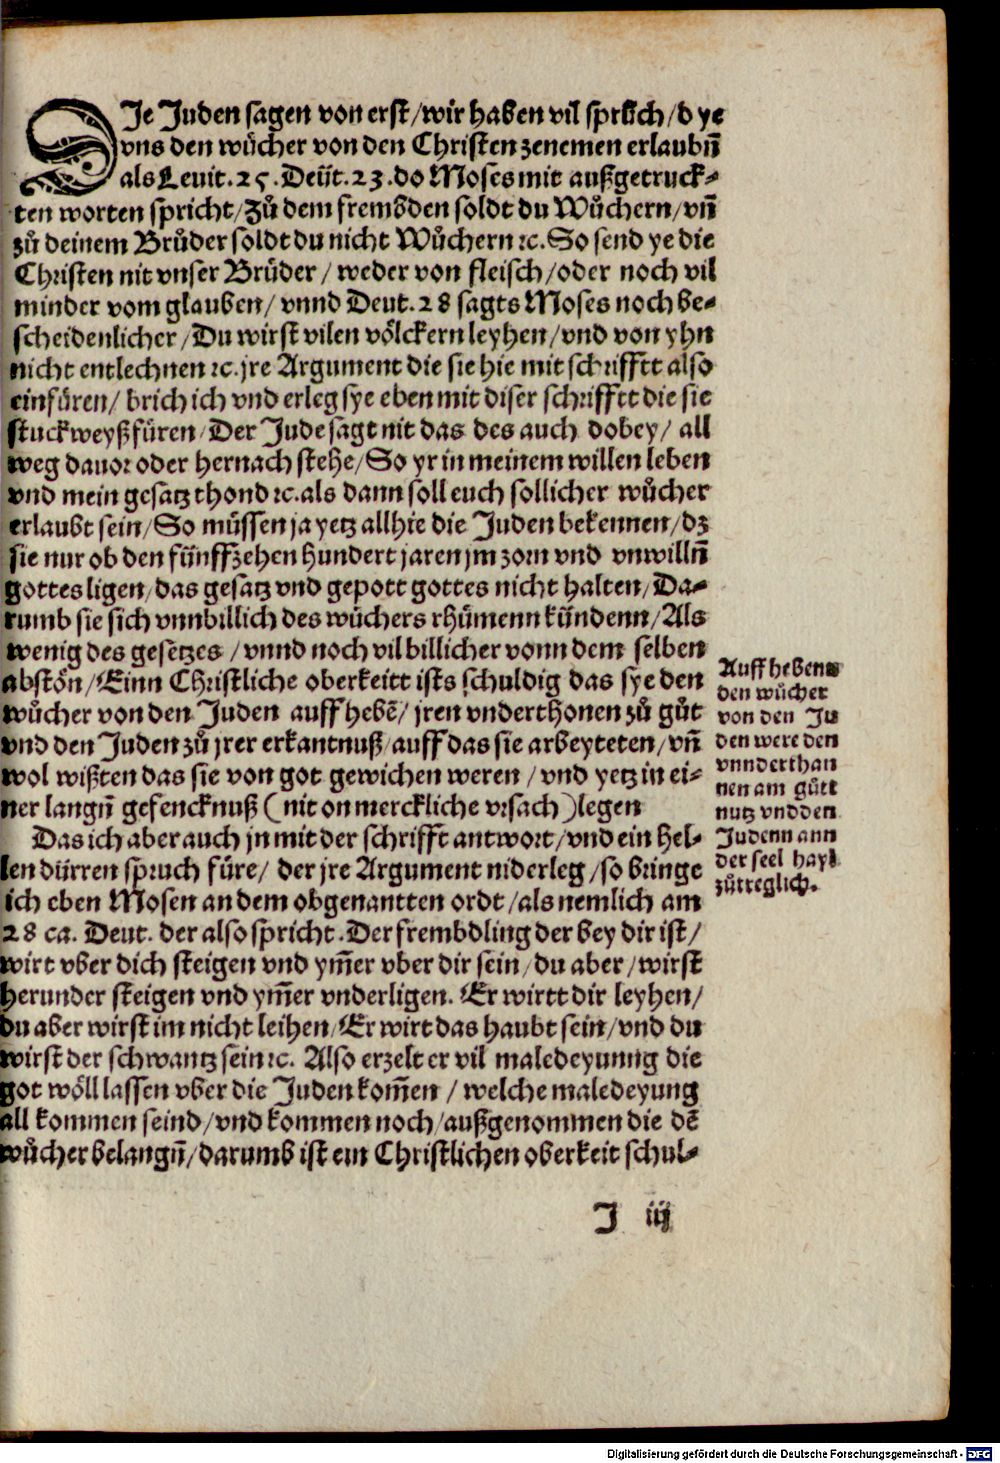 DIe Juden sagen von erst/wir haben vil sprüch/d ye
vns den wůcher von den Christen zenemen erlaubñ
als Leuit.25.Deüt.23.do Moses mit außgetruck-
ten worten spricht/Zů dem frembden soldt du Wůchern/vñ
zů deinem Brůder soldt du nicht Wůchern ꝛc.So send ye die
Christen nit vnser Brüder/ weder von fleisch/oder noch vil
minder vom glauben/ vnnd Deut.28 sagts Moses noch be-
scheidenlicher/Du wirst vilen völckern leyhen/vnd von yhn
nicht entlechnen ꝛc.jre Argument die sie hie mit schrifftt also
einfüren/ brich ich vnd erleg sye eben mit diser schrifftt die sie
stuckweyß füren/Der Jude sagt nit das des auch dobey/ all
weg dauor oder hernach stehe/So yr in meinem willen leben
vnd mein gesatz thond ꝛc.als dann soll euch sollicher wůcher
erlaubt sein/So müssen ja yetz allhie die Juden bekennen/dz
sie nur ob den fünffzehen hundert jaren jm zorn vnd vnwillñ
gottes ligen/das gesatz vnd gepott gottes nicht halten/Da-
rumb sie sich vnnbillich des wůchers rhümenn kündenn/Als
wenig des gesetzes /vnnd noch vil billicher vonn dem selben
abstön/Einn Christliche oberkeitt ists schuldig das sye den
wůcher von den Juden auff hebẽ/ jren vnderthonen zů gůt
vnd den Juden zů jrer erkantnuß/auff das sie arbeyteten/vñ
wol wißten das sie von got gewichen weren /vnd yetz in ei-
ner langñ gefencknuß (nit on merckliche vrsach)legen
Das ich aber auch jn mit der schrifft antwort/vnd ein hel-
len dürren spruch füre/ der jre Argument niderleg/so bringe
ich eben Mosen an dem obgenantten ordt/als nemlich am
28 ca. Deut. der also spricht.Der frembdling der bey dir ist/
wirt vber dich steigen vnd ym̃er vber dir sein/du aber/wirst
herunder steigen vnd ym̃er vnderligen. Er wirtt dir leyhen/
du aber wirst im nicht leihen/Er wirt das haubt sein/vnd du
wirst der schwantz sein ꝛc. Also erzelt er vil maledeyunng die
got wöll lassen vber die Juden kom̃en /welche maledeyung
all kommen seind/vnd kommen noch/außgenommen die dẽ
wůcher belangñ/darumb ist ein Christlichen oberkeit schul-
Auff heben
den wůcher
von den Ju
den were den
vnnderthan
nen am gůtt
nutz vnd den
Judenn ann
der seel hayl
zůtreglich.
J iij
Digitalisierung gefördert durch die Deutsche Forschungsgemeinschaft - DFG